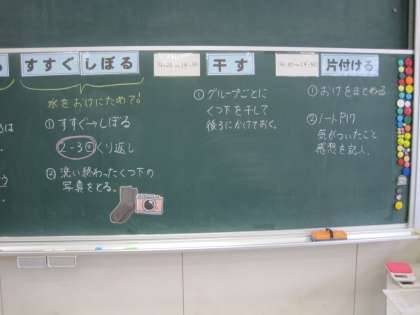 すすぐ しぼる
水をおけにためて!
①すすぐ→しぼる
2-3回くり返し
②洗い終わったくつ下の
写真をとる。
干す
①グループごとに
くつ下を干して
後ろにかけておく。
片付ける
①おけをまとめる
②ノートP.17
気がついたこと
感想を記入。